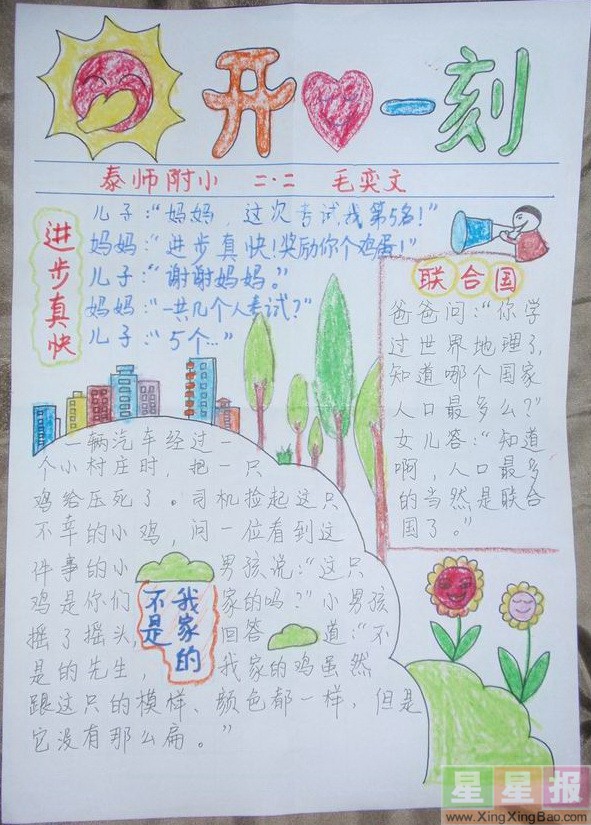 开心一刻
泰师附小 二·二 毛奕文
进步真快
儿子:“妈妈,这次考试,我第5名!”
妈妈:“进步真快!奖励你个鸡蛋!”
儿子:“谢谢妈妈。”
妈妈:“一共几个人考试?”
儿子:“5个…”
联合国
爸爸问:“你学
过世界地理了,
知道哪个国家
人口最多么?”
女儿答:“知道
啊,人口最多
的当然是联合
国了。”
一辆汽车经过一
个小村庄时,把一只
鸡给压死了。司机捡起这只
不幸的小鸡,问一位看到这
件事的小男孩说:“这只
鸡是你们家的吗?”小男孩
摇了摇头,回答道:“不
是的先生,我家的鸡虽然
跟这只的模样、颜色都一样,但是
它没有那么扁。”
不是我家的
星星报
www.XingXingBao.com